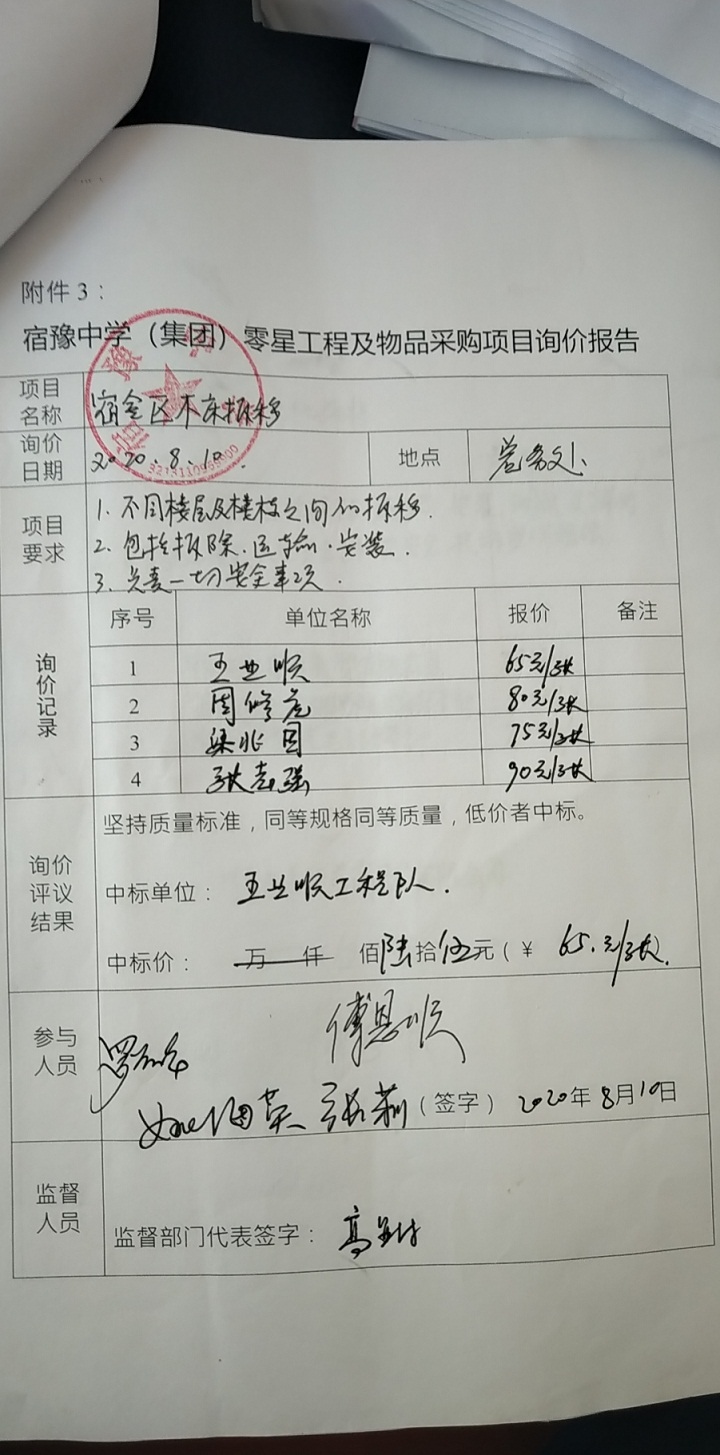 附件 3：
宿豫中学（集团）零星工程及物品采购项目询价报告
项目名称 宿舍区木床拆移
询价日期 2020.8.10. 地点 总务处
项目要求
1. 不同楼层及楼栋之间的拆移.
2. 包括拆除.运输.安装.
3. 负责一切安全事项.
询价记录
序号 单位名称 报价 备注
1 王业顺 65元/张
2 周修 80元/张
3 梁兆国 75元/张
4 张志强 90元/张
询价评议结果
坚持质量标准，同等规格同等质量，低价者中标。
中标单位： 王业顺工程队.
中标价： 万 仟 佰陆拾伍元（￥ 65.元/张.
参与人员
傅恩顺
张莉（签字） 2020年 8月10日
监督人员
监督部门代表签字： 高
豫
3213110965000